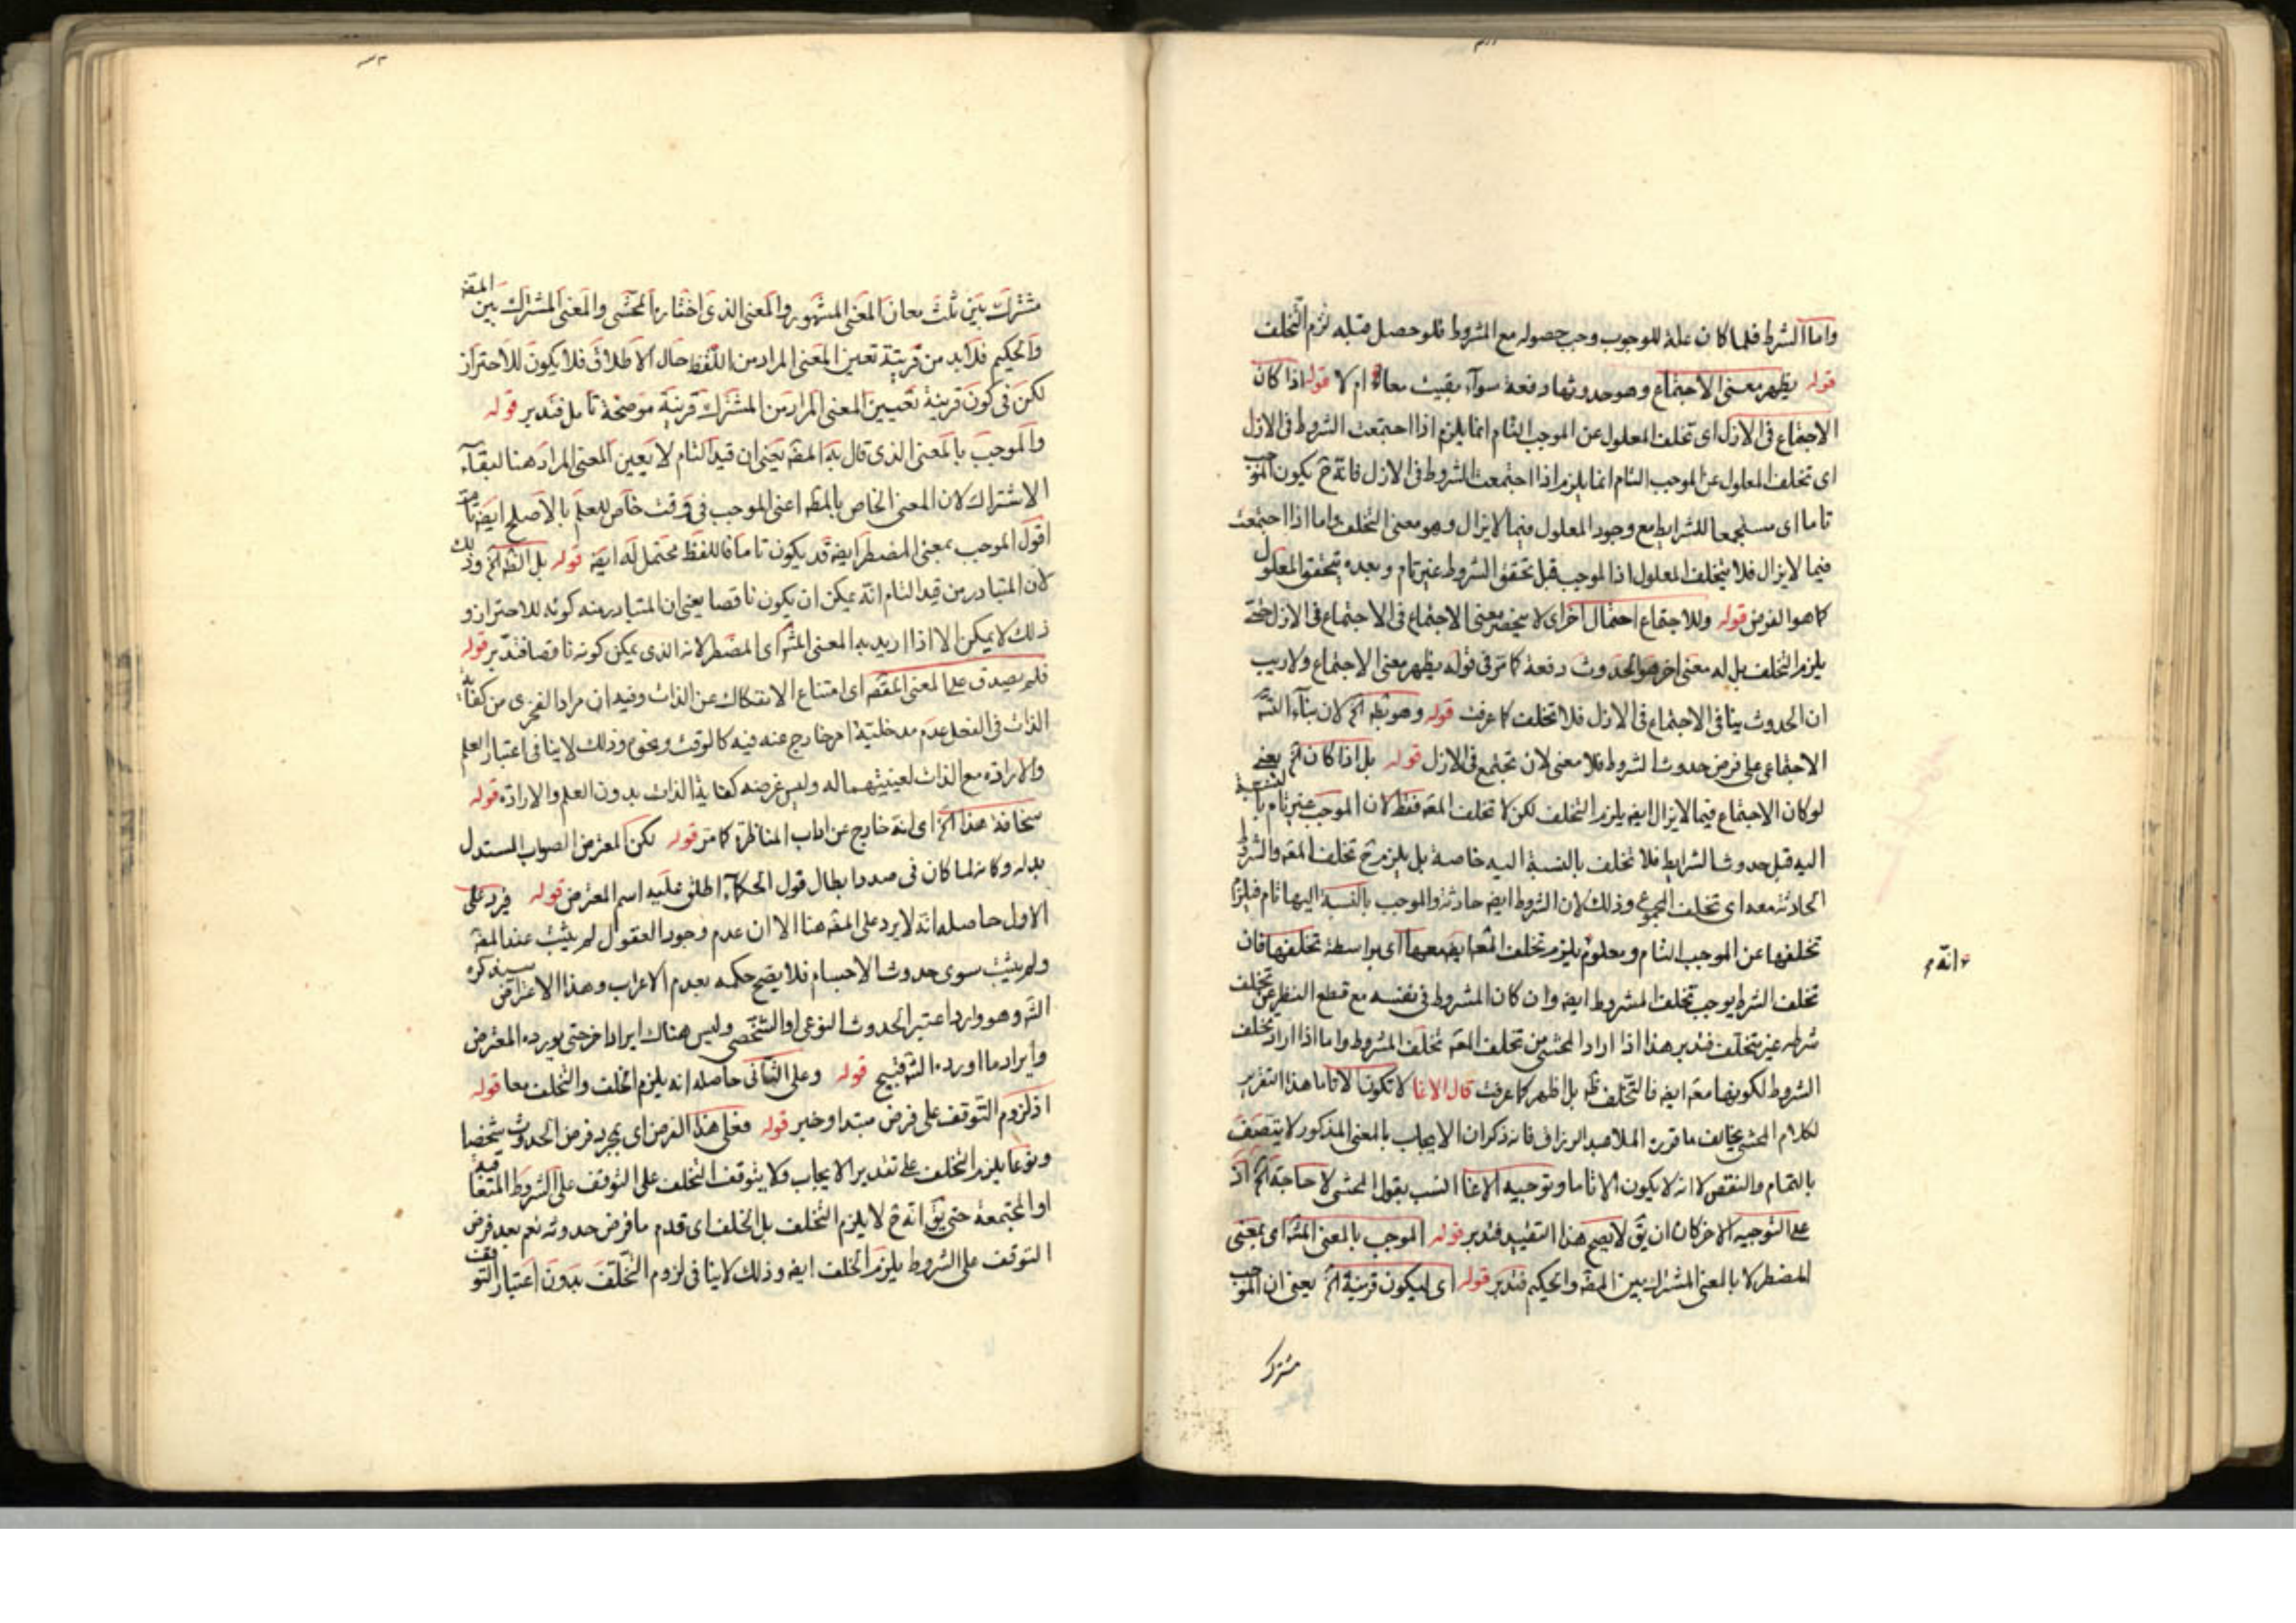 واما الشرط فلما كان علة للوجوب وجب حصوله مع المشروط فلو حصل قبله لزم التخلف
قوله يظهر معنى الاجتماع وهو حدوثها دفعة سوآء بقيت معا ام لا قوله اذا كان
الاجتماع فى الازل اى تخلف المعلول عن الموجب التام انما يلزم اذا اجتمعت الشروط فى الازل
اى تخلف المعلول عن الموجب التام انما يلزم اذا اجتمعت الشروط فى الازل فانه ح يكون الموجب
تاما اى مستجمعا للشرايط مع وجود المعلول فيما لا يزال وهو معنى التخلف واما اذا اجتمعت
فيما لا يزال فلا يتخلف المعلول اذ الموجب قبل تحقق الشروط غير تام وبعده يتحقق المعلول
كما هو الفرض قوله وللاجتماع احتمال اخر اى لا ينحصر معنى الاجتماع فى الاجتماع فى الازل حتى
يلزم التخلف بل له معنى اخر هو الحدوث دفعة كما مر فى قوله يظهر معنى الاجتماع ولا ريب
ان الحدوث ينافى الاجتماع فى الازل فلا تخلف كما عرفت قوله وهو بط الخ لان بنآء
الاجتماعى على فرض حدوث الشروط فلا معنى لان تجتمع فى الازل قوله بل اذا كان الخ يعنى
لو كان الاجتماع فيما لا يزال ايض يلزم التخلف لكن لا تخلف المعه فقط لان الموجب غير تام بالنسبة
اليه قبل حدوث الشرايط فلا تخلف بالنسبة اليه خاصة بل يلزم ح تخلف المعه والشروط
الحادثة معه اى تخلف المجموع وذلك لان الشروط ايض حادثة والموجب بالنسبة اليها تام فيلزم
تخلفها عن الموجب التام ومعلوم يلزم تخلف المعه ايض معها اى بواسطة تخلفها فان
تخلف الشرط يوجب تخلف المشروط ايض وان كان المشروط فى نفسه مع قطع النظر عن تخلف
شرطه غير متخلف فتدبر هذا اذا اراد المحشى من تخلف المعه تخلف المشروط واما اذا اراد تخلف
الشروط لكونها معه ايض فالتخلف ظ بل اظهر كما عرفت قال الاغا لا تكونا الا تاما هذا التقرير
لكلام المحشى يخالف ما قرره الملا عبد الرزاق فانه ذكر ان الايجاب بالمعنى المذكور لا يتصف
بالتمام والنقص لا انه لا يكون الا تاما وتوجيه الاغا انسب بقول المحشى لا حاجة الخ اذ
على التوجيه الاخر كان ان يق لا يصح هذا التقييد فتدبر قوله الموجب بالمعنى المشه اى بمعنى
المضطر لا بالمعنى المشترك بين المقه والحكيم فتدبر قوله اى ليكون قرينة الخ يعنى ان الموجب
مشترك
انه
مشترك بين ثلث معان المعنى المشهور والمعنى الذى اختاره المحشى والمعنى المشترك بين المقه
والحكيم فلابد من قرينة تعين المعنى المراد من اللفظ حال الاطلاق فلا يكون للاحتراز
لكن فى كون قرينة تعيين المعنى المراد من المشترك قرينة موضحة تامل فتدبر قوله
والموجب بالمعنى الذى قال به المقه يعنى ان قيد التام لا يعين المعنى المراد هنا لبقآء
الاشتراك لان المعنى الخاص بالمقه اعنى الموجب فى وقت خاص للعلم بالاصلح ايض تام
اقول الموجب بمعنى المضطر ايض قد يكون تاما فاللفظ محتمل له ايض قوله بل الظ الخ وذلك
لان المتبادر من قيد التام انه يمكن ان يكون ناقصا يعنى ان المتبادر منه كونه للاحتراز و
ذلك لا يمكن الا اذا اريد به المعنى المشه اى المضطر لانه الذى يمكن كونه ناقصا فتدبر قوله
فلم يصدق على المعنى المقصه اى امتناع الانفكاك عن الذات وفيه ان مراد الفخرى من كفاية
الذات فى الفعل عدم مدخلية امر خارج عنه فيه كالوقت ونحوه وذلك لا ينافى اعتبار العلم
والارادة مع الذات لعينيتهما له وليس غرضه كفاية الذات بدون العلم والارادة قوله
سخافة هذا الخ اى انه خارج عن اداب المناظرة كما مر قوله لكن المعترض الصواب المستدل
بدله وكانه لما كان فى صدد ابطال قول الحكمآء اطلق عليه اسم المعترض قوله فيرد على
الاول حاصله انه لا يرد على المقه هنا الا ان عدم وجود العقول لم يثبت عند المقه
ولم يثبت سوى حدوث الاجسام فلا يصح حكمه بعدم الاعراب وهذا الاعتراض سيذكره
الش وهو وارد اعتبر الحدوث النوعى او الشخصى وليس هناك ايراد اخر حتى يورده المعترض
وايراد ما اورده الش قبيح قوله وعلى الثانى حاصله انه يلزم الخلف والتخلف معا قوله
اذ لزوم التوقف على فرض مبتدا وخبر قوله فعلى هذا الفرض اى بمجرد فرض الحدوث شخصا
ونوعا يلزم التخلف على تقدير الايجاب ولا يتوقف التخلف على التوقف على الشروط المتعاقبة
او المجتمعة حتى يق انه ح لا يلزم التخلف بل الخلف اى قدم ما فرض حدوثه نعم بعد فرض
التوقف على الشروط يلزم الخلف ايض وذلك لا ينافى لزوم التخلف بدون اعتبار التوقف